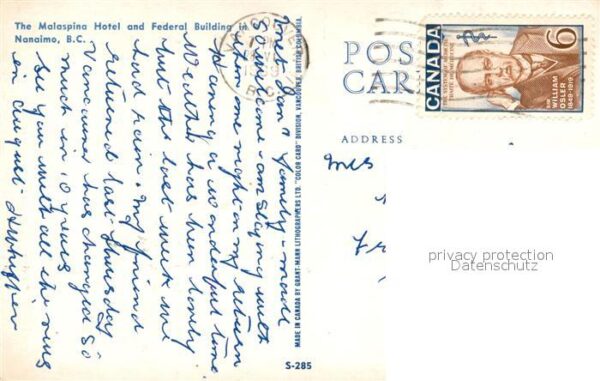 The Malaspina Hotel and Federal Building in
Nanaimo, B.C.
Don & family - made
so welcome - am staying with
him one night on my return
Having a wonderful time
Weather has been lovely
but the last week we
had rain. My friend
returned last Thursday
Vancouver has changed so
much in 10 years.
See you with all the news
in August.
MADE IN CANADA BY GRANT-MANN LITHOGRAPHERS LTD. "COLOR CARD" DIVISION, VANCOUVER, BRITISH COLUMBIA.
S-285
VANCOUVER
1969
B.C.
POS
CAR
ADDRESS
Mrs
CANADA
6
SIR
WILLIAM
OSLER
1849-1919
privacy protection
Datenschutz